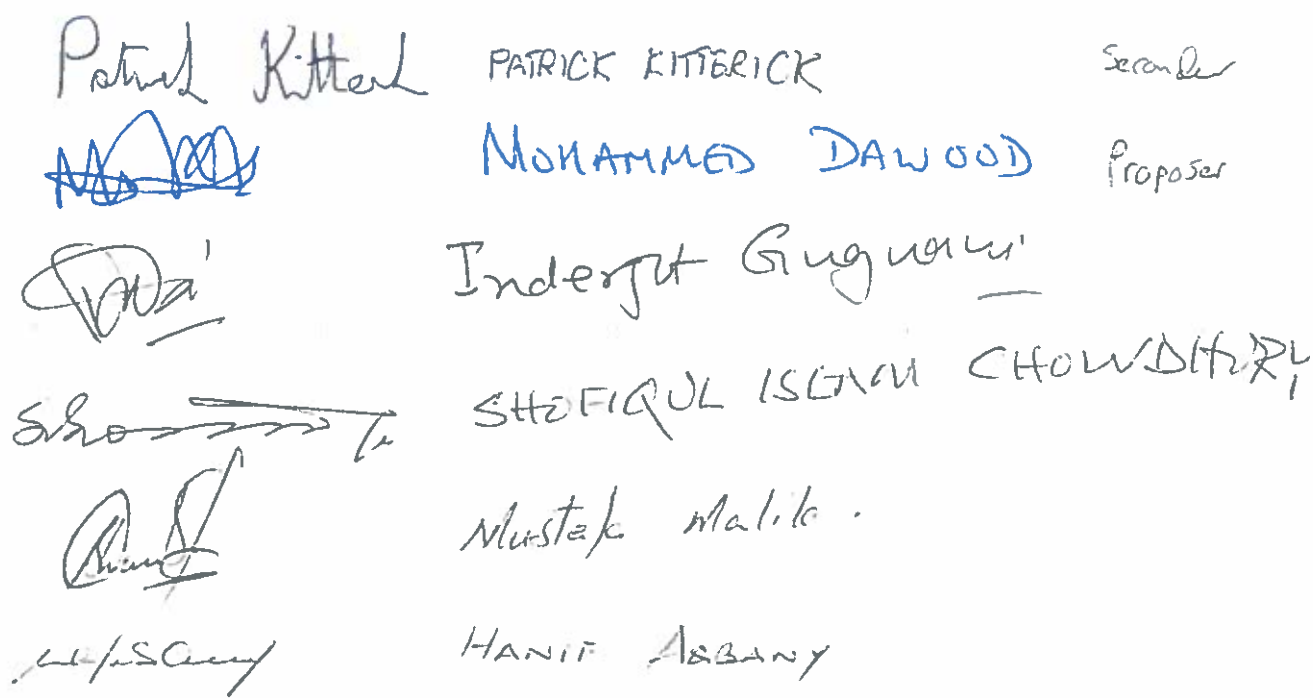 Patrick Kitterick PATRICK KITTERICK Seconder
MOHAMMED DAWOOD Proposer
Inderjit Gugnani
SHOFIQUL ISLAM CHOWDHURY
Mustak Malik.
HANIF ASBANY